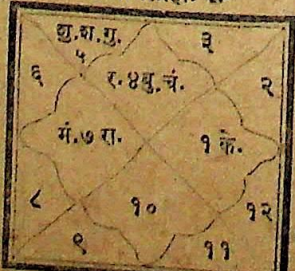 शु. श. गु.
५
३
६
र. ४ बु. चं.
२
मं. ७ रा.
१ के.
८
१०
१२
९
११